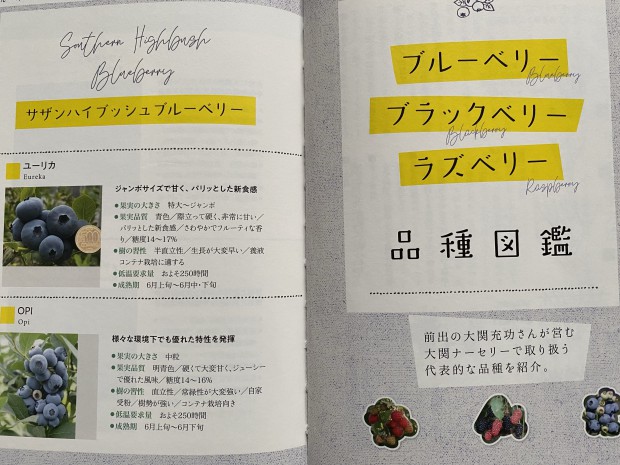 Southern Highbush
Blueberry
サザンハイブッシュブルーベリー
ユーリカ
Eureka
ジャンボサイズで甘く、パリッとした新食感
●果実の大きさ 特大～ジャンボ
●果実品質 青色／際立って硬く、非常に甘い／
パリッとした新食感／さわやかでフルーティな香
り／糖度14～17%
●樹の習性 半直立性／生長が大変早い／養液
コンテナ栽培に適する
●低温要求量 およそ250時間
●成熟期 6月上旬～6月中・下旬
OPI
Opi
様々な環境下でも優れた特性を発揮
●果実の大きさ 中粒
●果実品質 明青色／硬くて大変甘く、ジューシー
で優れた風味／糖度14～16%
●樹の習性 直立性／常緑性が大変強い／自家
受粉／樹勢が強い／コンテナ栽培向き
●低温要求量 およそ250時間
●成熟期 6月上旬～6月下旬
ブルーベリー
Blueberry
ブラックベリー
Blackberry
ラズベリー
Raspberry
品種図鑑
前出の大関充功さんが営む
大関ナーセリーで取り扱う
代表的な品種を紹介。